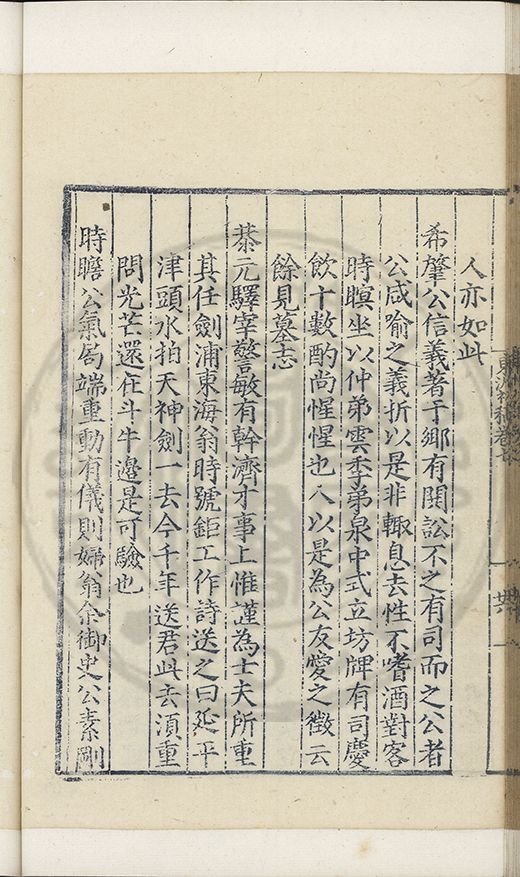 人亦如此
希肇公信義著于鄉有鬩訟不之有司而之公者
公咸喻之義折以是非輙息去性不嗜酒對客
時瞑坐以仲弟雲季弟泉中式立坊牌有司慶
飲十數酌尚惺惺也人以是為公友愛之徵云
餘見墓志
恭元驛宰警敏有幹濟才事上惟謹為士夫所重
其任劍浦東海翁時號鉅工作詩送之曰延平
津頭水拍天神劍一去今千年送君此去須重
問光芒還在斗牛邊是可驗也
時瞻公氣局端重動有儀則婦翁余御史公素剛